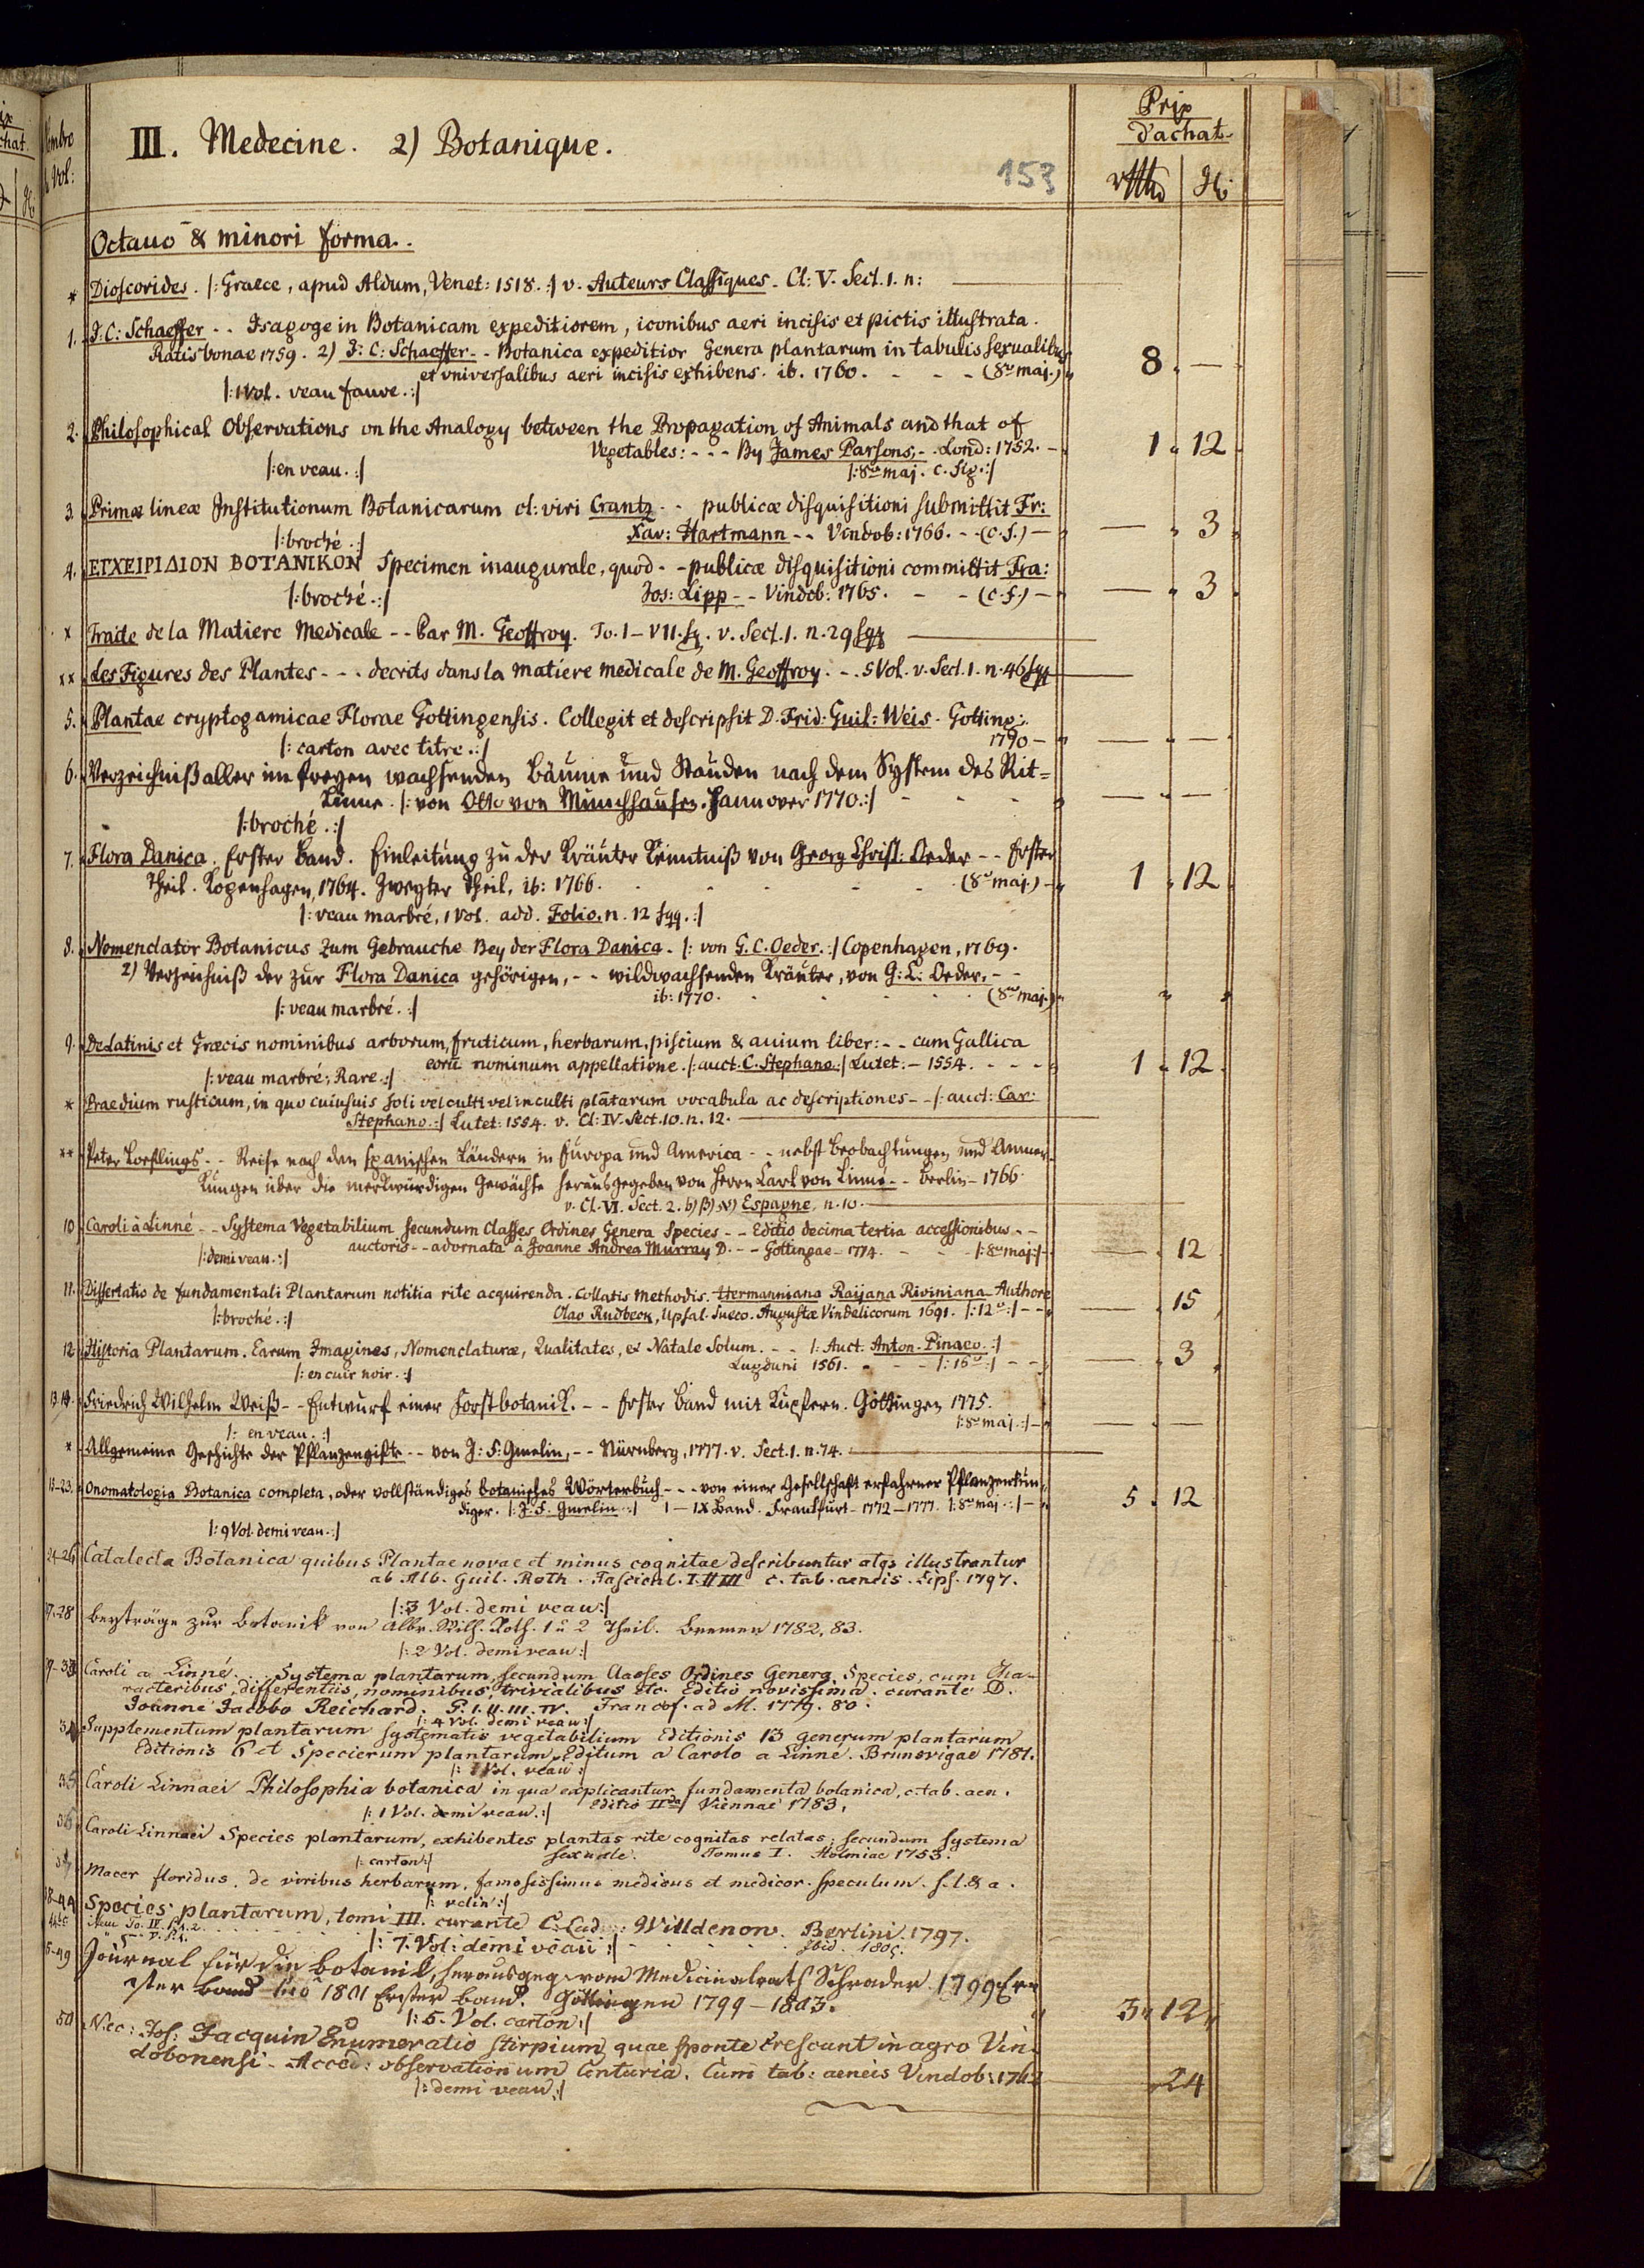 Nombre
de Vol:
III. Medecine. 2) Botanique.
153
Prix
d'achat
Octauo & minori forma.
* Dioscorides. /: Graece, apud Aldum, Venet: 1518. :/ v. Auteurs Classiques. Cl: V. Sect. 1. n:
1. J: C: Schaeffer -- Isagoge in Botanicam expeditiorem, iconibus aeri incisis et pictis illustrata.
Ratisbonae 1759. 2) J: C: Schaeffer -- Botanica expeditior Genera plantarum in tabulis sexualibus
et vniversalibus aeri incisis exhibens. ib. 1760. - - - (8vo maj.) 8 . —
/: 1 Vol. veau fauve. :/
2. Philosophical Observations on the Analogy between the Propagation of Animals and that of
Vegetables: - - - By James Parsons, - . Lond: 1752. - 1 . 12
/: en veau. :/ /: 8vo maj. c. fig. :/
3. Primæ lineæ Institutionum Botanicarum cl: viri Crantz - - publicæ disquisitioni submittit Fr:
Xav: Hartmann -- Vindob: 1766. - - (c. f.) — — . 3
/: broché. :/
4. ΕΓΧΕΙΡΙΔΙΟΝ ΒΟΤΑΝΙΚΟΝ Specimen inaugurale, quod - - publicæ disquisitioni committit Fra:
/: broché. :/ Jos: Lipp -- Vindob: 1765. - - (c. f.) — — . 3
x Traite de la Matiere Medicale -- Par M. Geoffroy. To. I – VII. sq. v. Sect. 1. n. 29 sqq
xx Les Figures des Plantes - - - decrits dans la matiere medicale de M. Geoffroy. - . 5 Vol. v. Sect. 1. n. 46 sqq
5. Plantae cryptogamicae Florae Gottingensis. Collegit et descripsit D. Frid: Guil: Weis. Gotting:
/: carton avec titre. :/ 1790 — — . —
6. Verzeichniß aller im freyen wachsenden Bäume und Stauden nach dem System des Rit=
Linne. /: von Otto von Münchhausen. Hannover 1770. :/ - - - — . —
/: broché. :/
7. Flora Danica. Erster Band. Einleitung zu der Kräuter Kenntniß von Georg Christ: Oeder -- Erster
Theil. Kopenhagen, 1764. Zweyter Theil, ib: 1766. (8vo maj.) — 1 . 12
/: veau marbré, 1 Vol. add. Folio. n. 12 sqq. :/
8. Nomenclator Botanicus zum Gebrauche Bey der Flora Danica. /: von G. C. Oeder. :/ Copenhagen, 1769.
2) Verzeichniß der zur Flora Danica gehörigen, -- wildwachsenden Kräuter, von G: C: Oeder, - -
ib: 1770. (8vo maj.)
/: veau marbré. :/
9. De Latinis et Græcis nominibus arborum, fruticum, herbarum, piscium & auium liber: - - cum Gallica
eorū nominum appellatione. /: auct. C. Stephano. :/ Lutet: — 1554. - - - - 1 . 12
/: veau marbré; Rare. :/
* Praedium rusticum, in quo cuiusuis soli vel culti vel inculti plātarum vocabula ac descriptiones - - /: auct: Car:
Stephano. :/ Lutet: 1554. v. Cl: IV. Sect. 10. n. 12.
** Peter Loeflings -- Reise nach den spanischen Ländern in Europa und America -- nebst Beobachtungen und Anmer-
kungen über die merkwürdigen Gewächse herausgegeben von Herrn Carl von Linné -- Berlin - 1766
v. Cl. VI. Sect. 2. b) β) א) Espagne. n. 10.
10. Caroli à Linné -- Systema Vegetabilium secundum Classes Ordines Genera Species -- Editio decima tertia accessionibus - -
auctoris -- adornata à Joanne Andrea Murray D. - - Gottingae - 1774. - - /: 8vo maj :/ — . 12
/: demi veau. :/
11. Dissertatio de fundamentali Plantarum notitia rite acquirenda. Collatis methodis. Hermanniana Raijana Riviniana Authore
/: broché. :/ Olao Rudbeck, Upsal. Sueco. Augustæ Vindelicorum 1691. /: 12o :/ - - — . 15
12. Historia Plantarum. Earum Imagines, Nomenclaturæ, Qualitates, et Natale Solum. - - /: Auct. Anton. Pinaeo. :/
Lugduni 1561. - - - /: 16o :/ - - — . 3
/: en cuir noir. :/
13.14. Friedrich Wilhelm Weiß -- Entwurf einer Forstbotanik. -- Erster Band mit Kupfern. Göttingen 1775.
/: 8vo maj. :/ — — . —
/: en veau. :/
* Allgemeine Geschichte der Pflanzengifte -- von J: F: Gmelin, -- Nürnberg, 1777. v. Sect. 1. n. 74.
15-23. Onomatologia Botanica completa, oder vollständiges botanisches Wörterbuch - - - von einer Gesellschaft erfahrner Pflanzenkün-
diger. /: J. F. Gmelin. :/ I – IX Band. Frankfurt - 1772 – 1777. /: 8vo maj. :/ — 5 . 12
/: 9 Vol. demi veau. :/
24-26 Catalecta Botanica quibus Plantae novae et minus cognitae describuntur atqs illustrantur
ab Alb. Guil. Roth. Fascicul. I. II III c. tab. aeneis. Lips. 1797.
/: 3 Vol. demi veau :/
27-28 Beyträge zur Botanik von Albr. Wilh. Roth. 1 u 2 Theil. Bremen 1782, 83.
/: 2 Vol. demi veau :/
Caroli a Linné. . . . Systema plantarum, secundum Classes Ordines Genera Species, cum Cha-
racteribus, differentiis, nominibus, trivialibus etc. Editio novissima. curante D.
Joanne Jacobo Reichard. P. I. II. III. IV. Francof. ad M. 1779. 80.
/: 4 Vol. demi veau :/
Supplementum plantarum systematis vegetabilium Editionis 13 generum plantarum
Editionis 6 et Specierum plantarum. Editum a Carolo a Linné. Brunsvigae 1781.
/: 1 Vol. veau :/
35 Caroli Linnaei Philosophia botanica in qua explicantur fundamenta botanica, c. tab. aen.
/: 1 Vol. demi veau. :/ Editio IIda Viennae 1783.
36 Caroli Linnaei Species plantarum, exhibentes plantas rite cognitas relatas, secundum systema
/: carton :/ sexuale. Tomus I. Holmiae 1753.
Macer floridus, de viribus herbarum, famosissimus medicus et medicor. speculum. s. l. & a.
/: velin :/
38-44 Species plantarum, tomi III. curante C. Lud: Willdenow. Berlini. 1797.
item To. IV. P. 1. 2.
/: 7. Vol: demi veau :/ Ibid. 1805.
45-49 Journal für die Botanik, herausgeg. vom Medicinalrath Schrader. 1799 Er-
ster Band bis 1801 Erster Band. Göttingen 1799 – 1803.
/: 5. Vol. carton :/ 3 " 12
50 Nic: Jos: Jacquin Enumeratio stirpium, quae sponte crescunt in agro Vin-
dobonensi - Acced: observationum Centuria. Cum tab: aeneis Vindob: 1762 24
/: demi veau :/